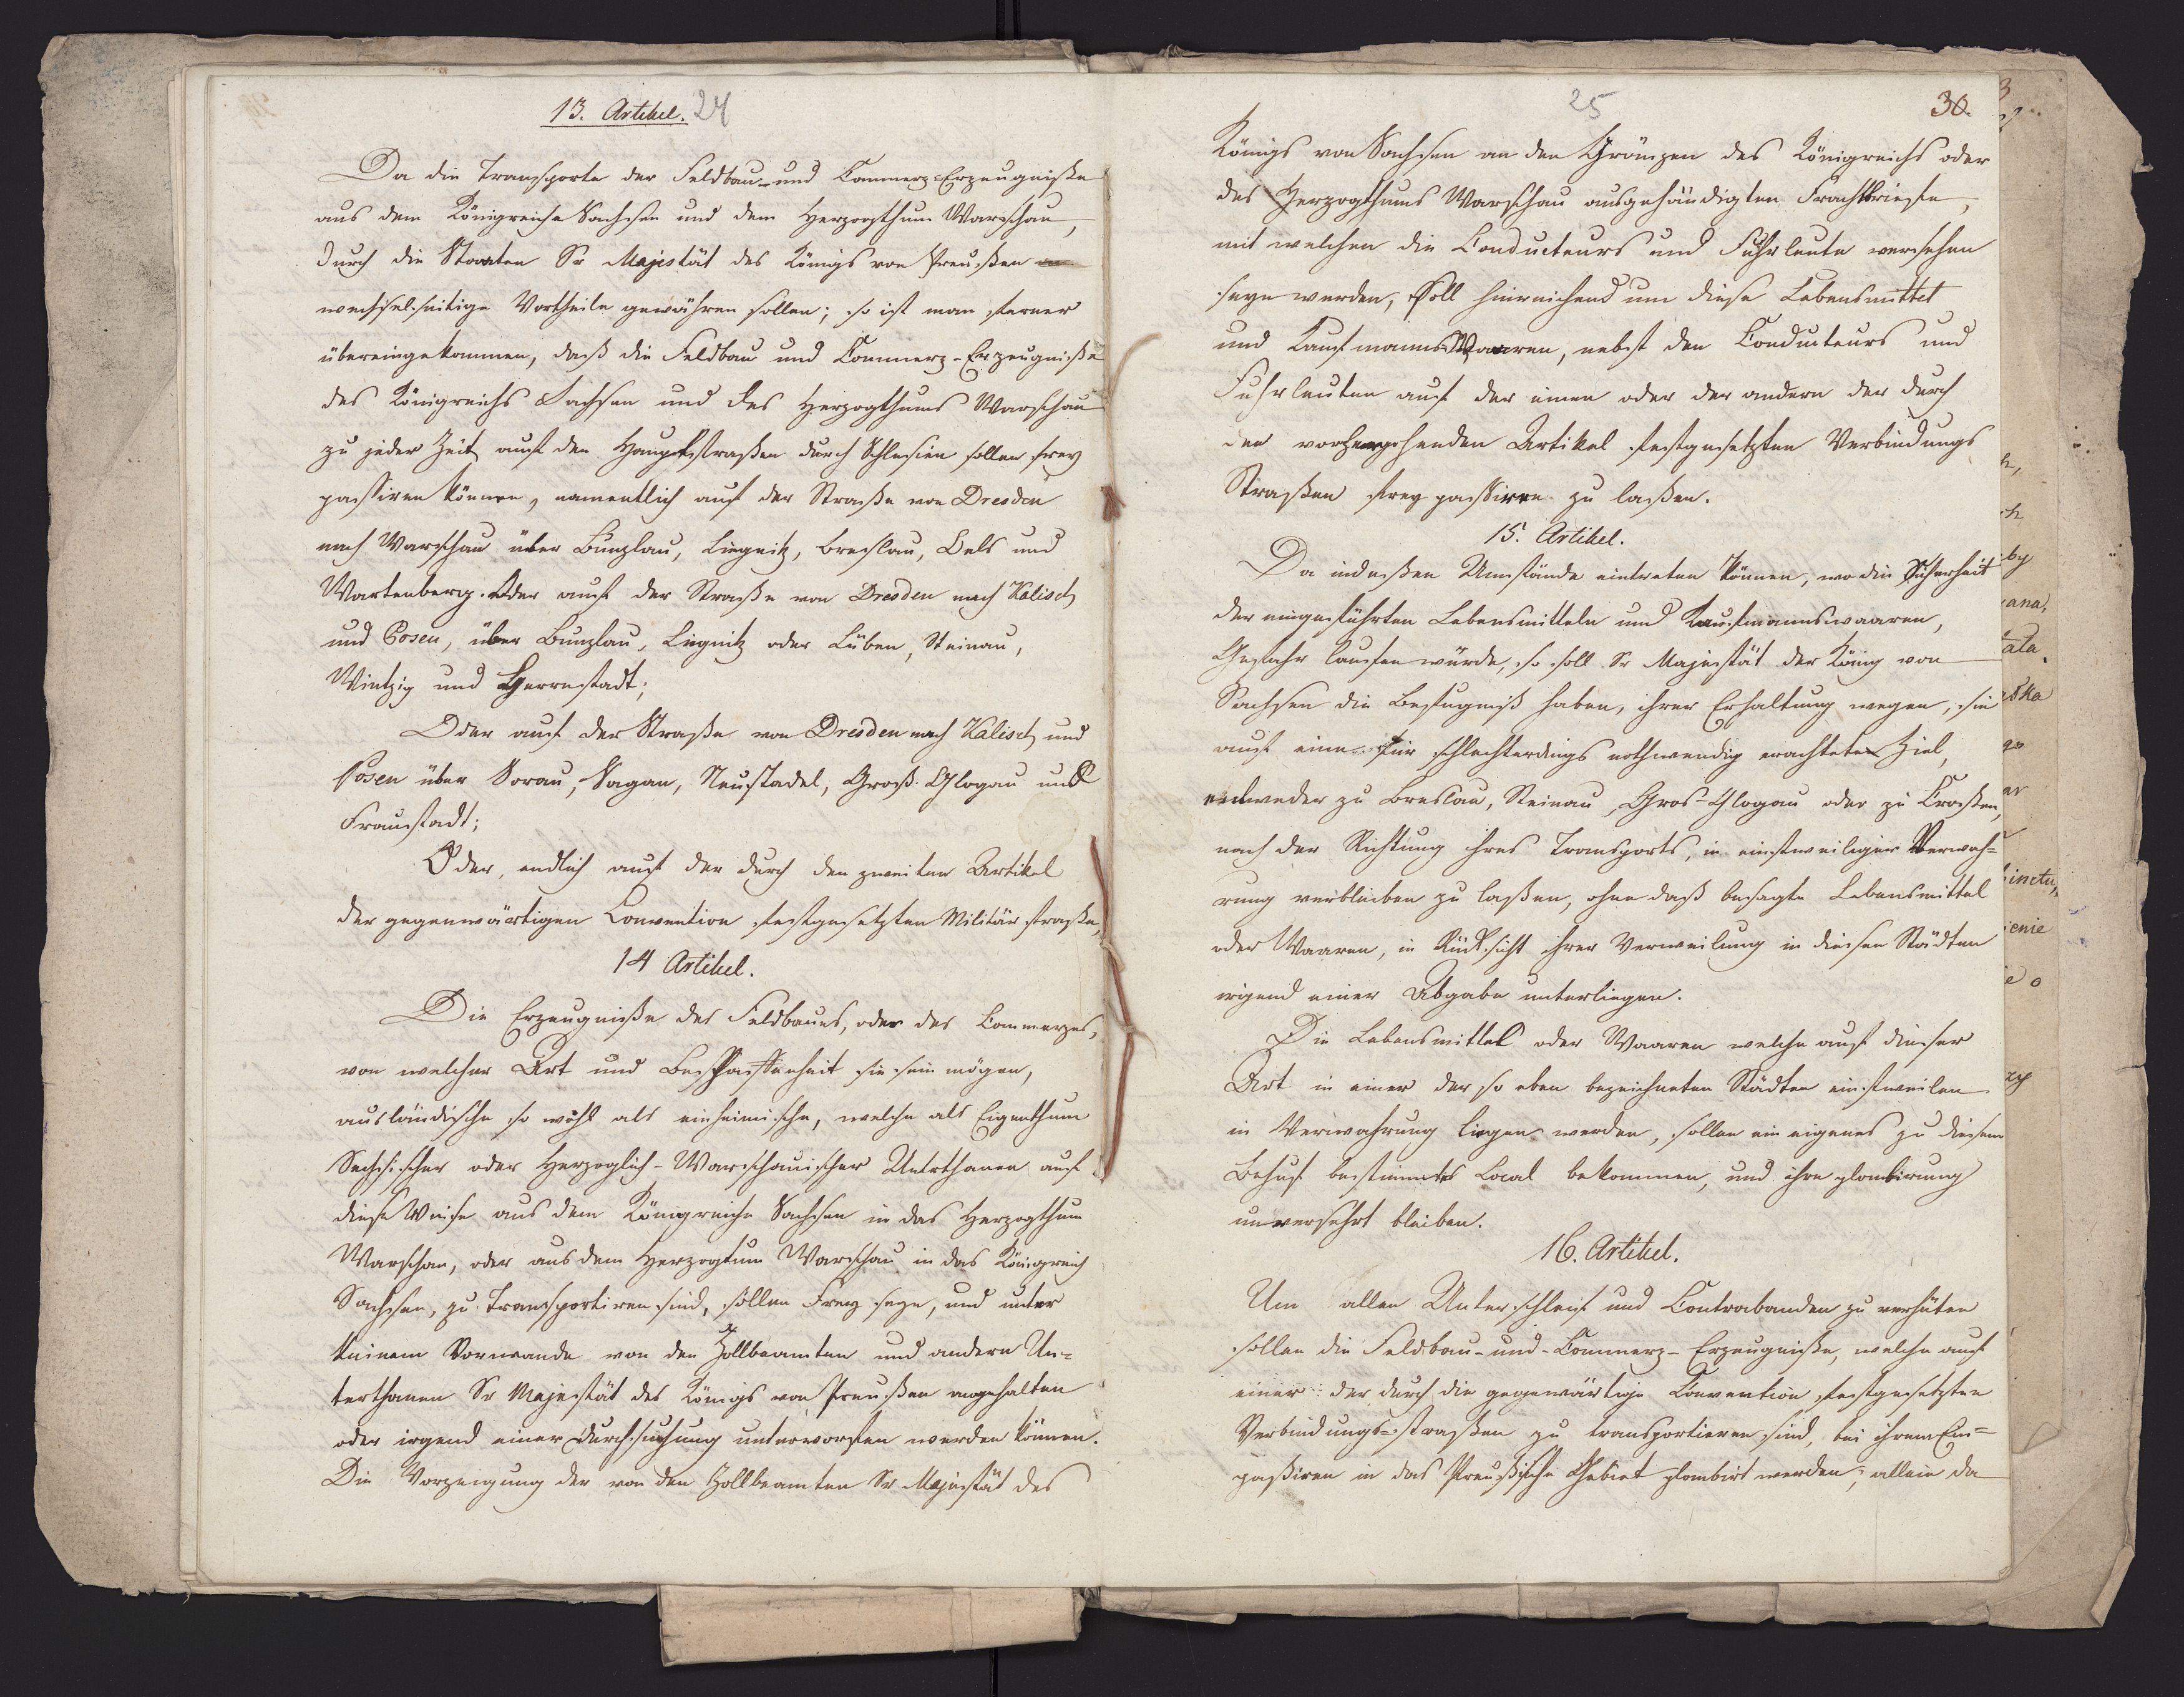 13. Artikel. 24
Da die Transporte der Feldbau- und Commerz-Erzeugniße
aus dem Königreiche Sachsen und dem Herzogthum Warschau,
durch die Staaten Sr Majestät des Königs von Preußen
wechselseitige Vortheile gewähren sollen; so ist man ferner
übereingekommen, daß die Feldbau und Commerz-Erzeugniße
des Königreichs Sachsen und des Herzogthums Warschau
zu jeder Zeit auf den Hauptstraßen durch Schlesien sollen frey
passiren können, namentlich auf der Straße von Dresden
nach Warschau über Bunzlau, Liegnitz, Breslau, Oels und
Wartenberg. Oder auf der Straße von Dresden nach Kalisch
und Posen, über Bunzlau, Liegnitz oder Lüben, Steinau,
Wintzig und Herrnstadt;
Oder auf der Straße von Dresden nach Kalisch und
Posen über Sorau, Sagan, Neustadel, Groß-Glogau und
Fraustadt;
Oder, endlich auf der durch den zweiten Artikel
der gegenwärtigen Convention festgesetzten Militär straße,
14 Artikel.
Die Erzeugniße des Feldbaues, oder des Commerzes,
von welcher Art und Beschaffenheit sie sein mögen,
ausländische so wohl als einheimische, welche als Eigenthum
Sächsischer oder Herzoglich-Warschauischer Unterthanen auf
diese Weise aus dem Königreiche Sachsen in das Herzogthum
Warschau, oder aus dem Herzogtum Warschau in das Königreich
Sachsen, zu transportiren sind, sollen Frey seyn, und unter
keinem Vorwande von den Zollbeamten und andern Un=
terthanen Sr Majestät des Königs von Preußen angehalten
oder irgend einer Durchsuchung unterworfen werden können.
Die Vorzeigung der von den Zollbeamten Sr Majestät des
25 30.
Königs von Sachsen an den Gränzen des Königreichs oder
des Herzogthums Warschau ausgehändigten Frachtbriefe,
mit welchen die Conducteurs und Fuhrleute versehen
seyn werden, soll hinreichend um diese Lebensmittel
und Kaufmanns Waaren, nebst den Conducteurs und
Fuhrleuten auf der einen oder der andern der durch
den vorhergehenden Artikel festgesetzten Verbindungs
Straßen frey passiren zu laßen.
15. Artikel.
Da indeßen Umstände eintreten können, wo die Sicherheit
der eingeführten Lebensmitteln und Kaufmannswaaren,
Gefahr laufen würde, so soll Sr Majestät der König von
Sachsen die Befugniß haben, ihrer Erhaltung wegen, sie
auf eine für schlechterdings nothwendig erachtete Ziel,
entweder zu Breslau, Steinau, Gros-Glogau oder zu Croßen,
nach der Richtung ihres Transports, in einstweiliger Verwah=
rung verbleiben zu laßen, ohne daß besagte Lebensmittel
oder Waaren, in Rücksicht ihrer Verweilung in diesen Städten
irgend einer Abgabe unterliegen.
Die Lebensmittel oder Waaren welche auf dieser
Art in einer der so eben bezeichneten Städten einstweilen
in Verwahrung liegen werden, sollen ein eigenes zu diesem
Behuf bestimmtes Local bekommen, und ihre plombirung
unversehrt bleiben.
16. Artikel.
Um allen Unterschleif und Contrabanden zu verhüten
sollen die Feldbau- und -Commerz- Erzeugniße, welche auf
einer der durch die gegenwärtige Convention festgesetzten
Verbindungs-straßen zu transportieren sind, bei ihrem Ein=
paßiren in das Preußische Gebiet plombirt werden, allein da
by
ana,
ała
ska
go
ar
inctu,
enie
e o
zy